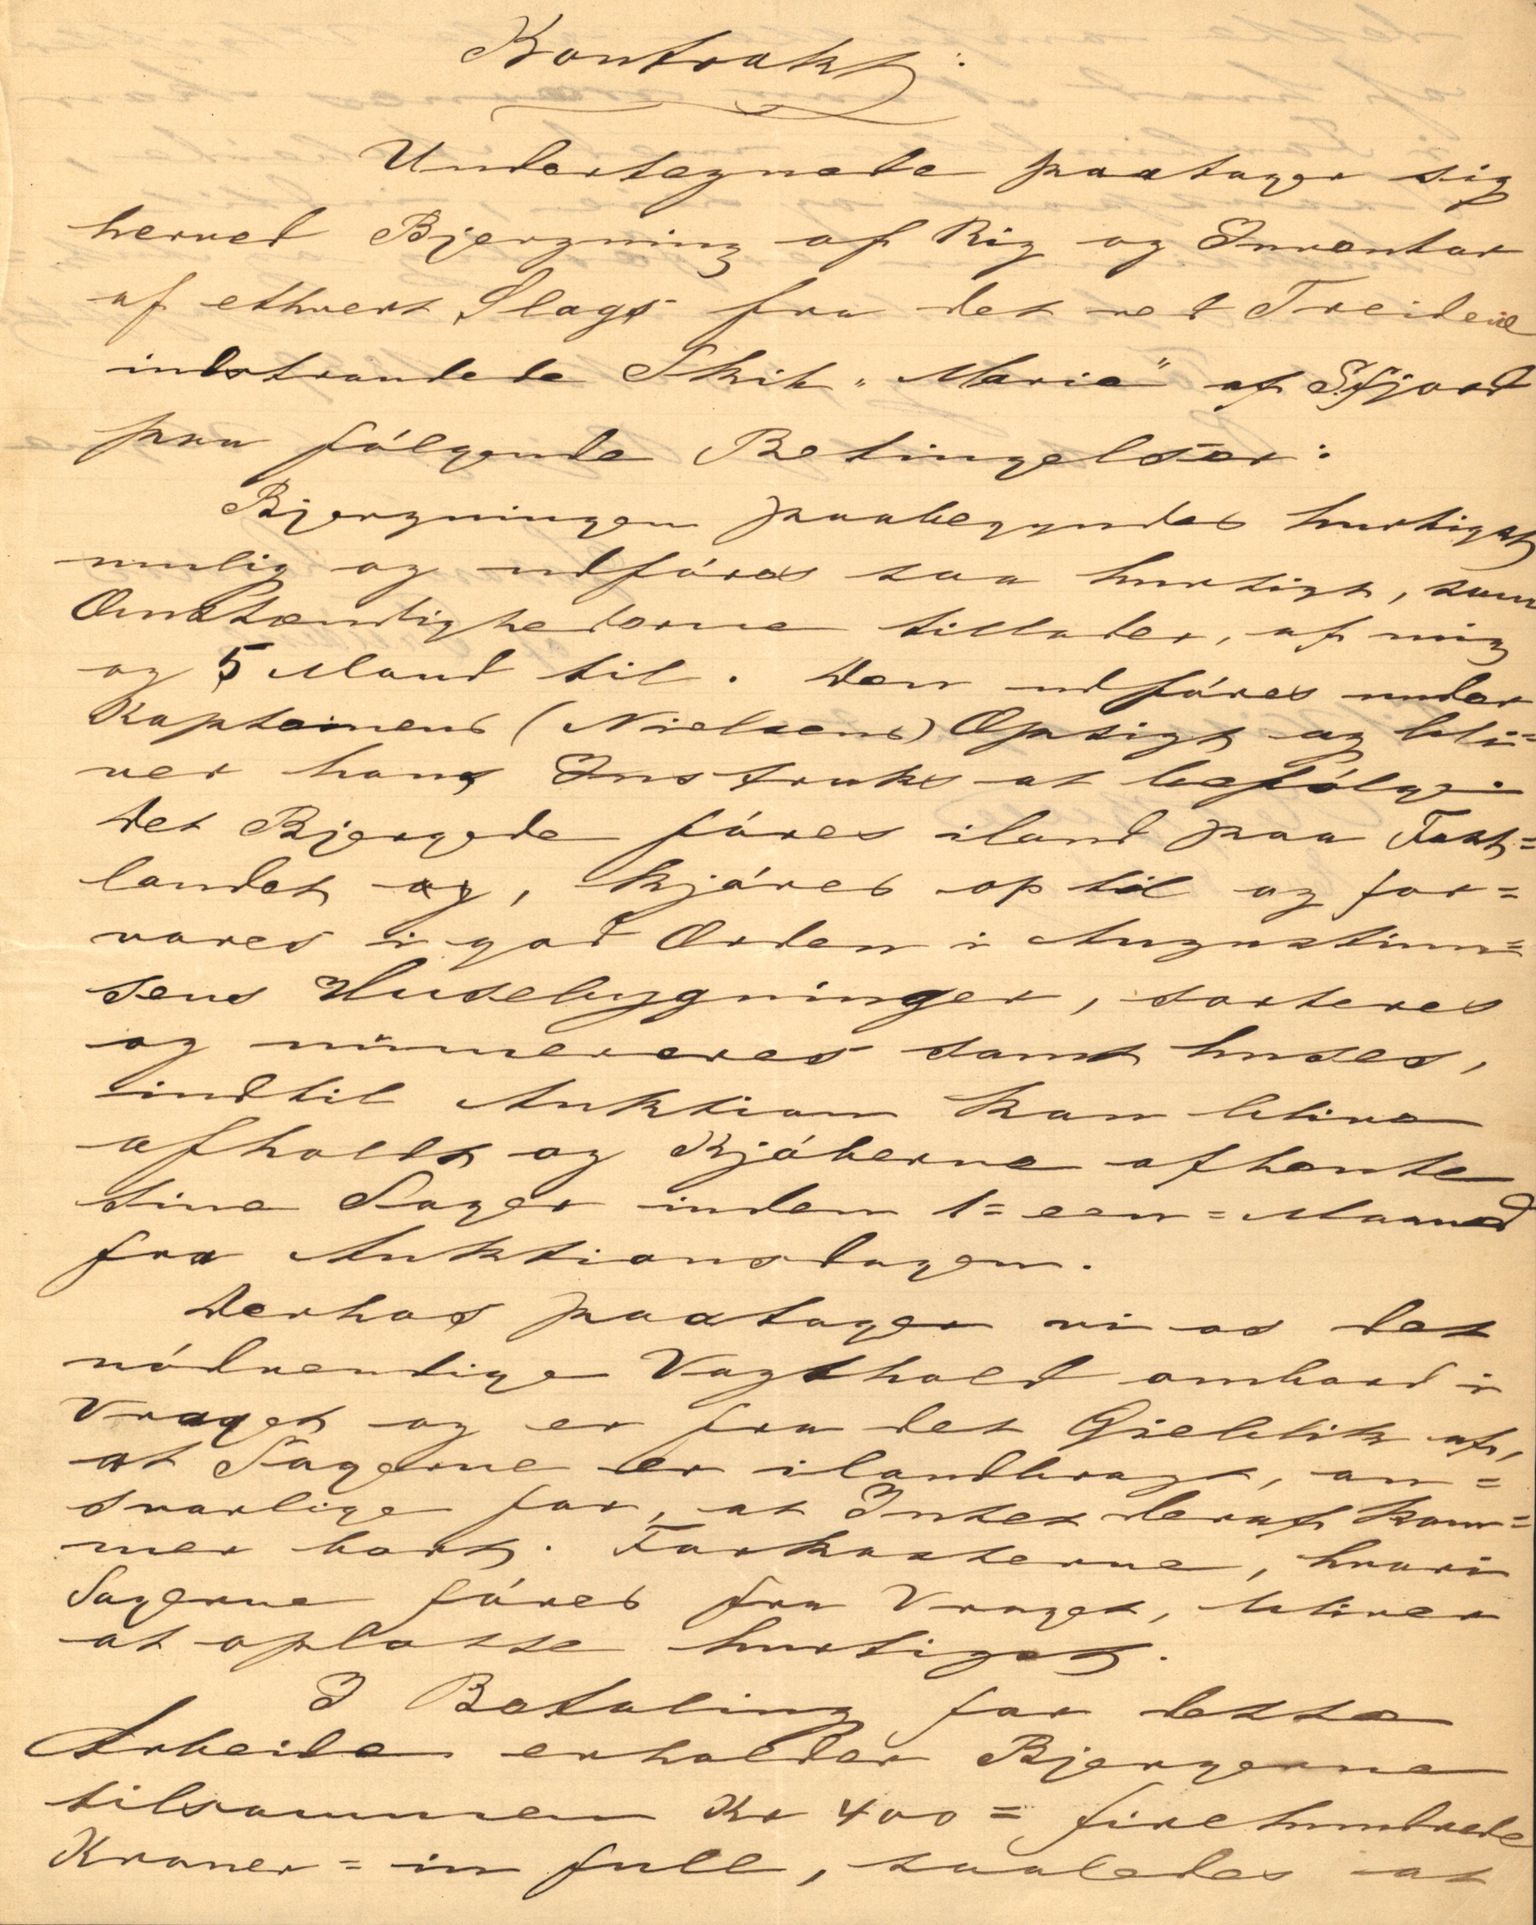 Kontrakt:
Undertegnede paatager sig
herved Bjergning af Rig og Inventar
af ethvert Slags fra det ved Treideene
indstrandede Skib "Maria" af Sfjord
paa fölgende Betingelser:
Bjergningen paabegyndes hurtigst
mulig og udföres saa hurtigt, som
Omstændighederne tillader, af mig
og 5 Mand til. Den udföres under
Kapteinens (Nielsens) Opsigt og bli=
ver hans Instruks at befölge.
Det Bjergede föres iland paa Fast=
landet og, kjöres op til og for=
vares i god Orden i Augustinu=
sens Husebygninger, sorteres
og nümereres samt huses,
indtil Auktion kan blive
afholdt og Kjöberne afhente
sine Sager inden 1= een = Maaned
fra Auktionsdagen.
Derhos paatager vi os det
nödvendige Vagthold ombord i
Vraget og er fra det Öieblik af,
at Sagerne er ilandbragt, an=
svarlige for, at Intet deraf kom=
mer bort. Farkosterne, hvori
Sagerne föres fra Vraget, bliver
at oplosse hurtigst.
I Betaling for dette
Arbeide erholder Bjergerne
tilsammen Kr 400 = firehundrede
Kroner = in full, saaledes at